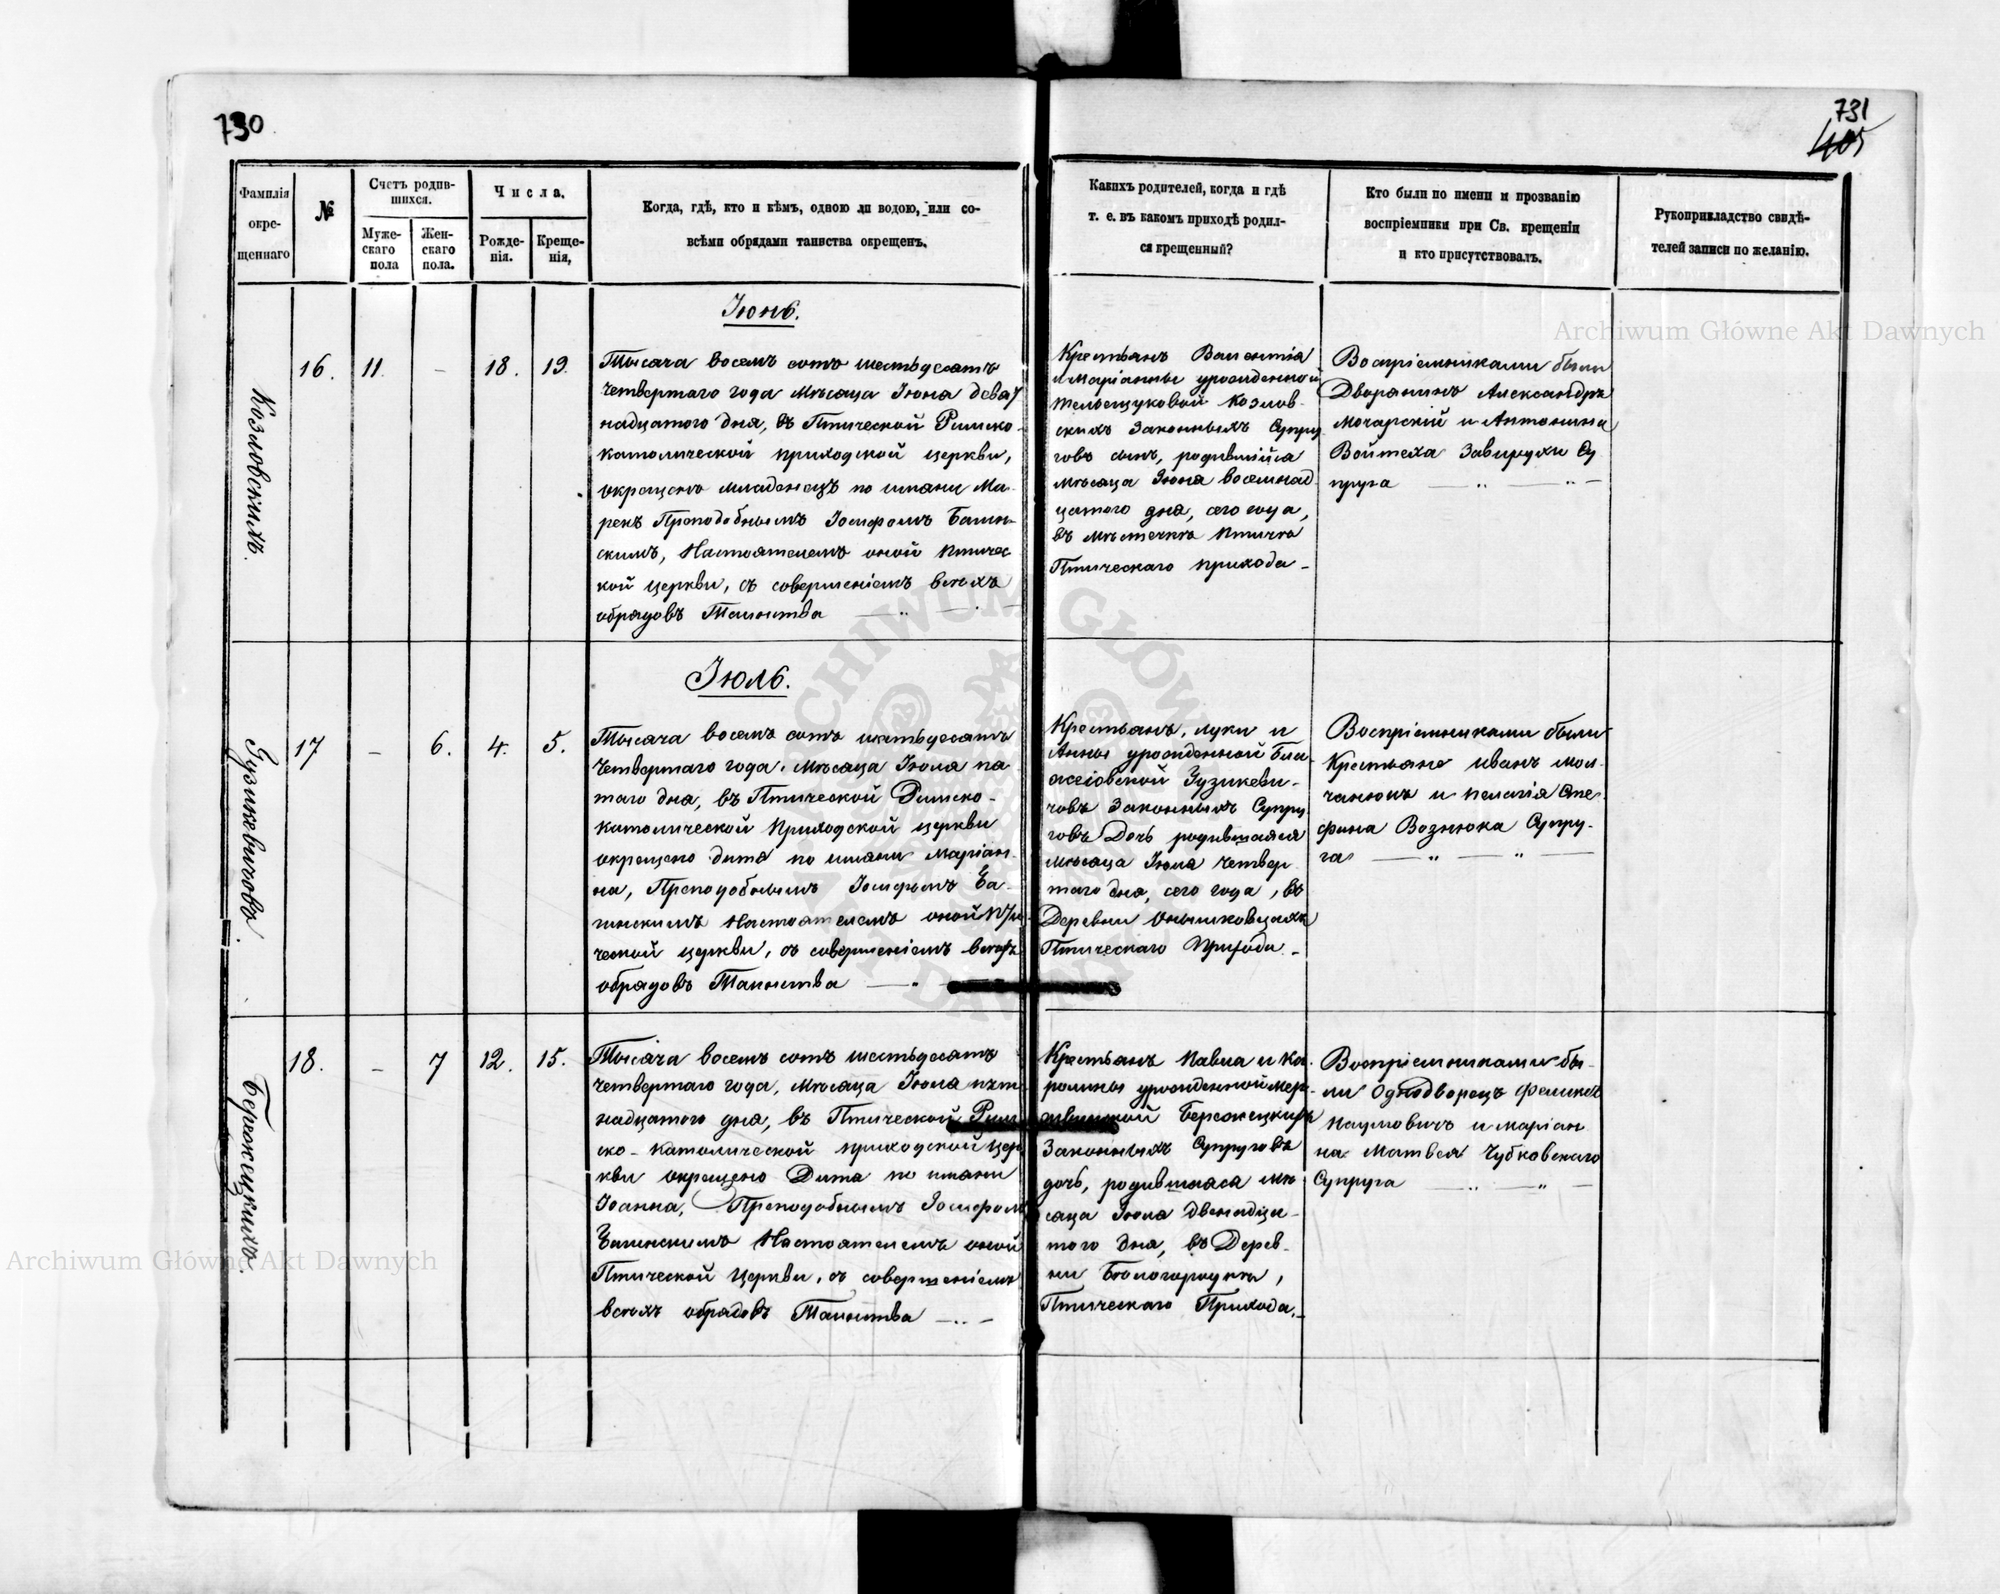 730
731
405
Фамилія
окре-
щеннаго
№
Счетъ родив-
шихся.
Муже-
скаго
пола
Жен-
скаго
пола.
Числа.
Рожде-
нія.
Креще-
нія,
Когда, гдѣ, кто и кѣмъ, одною ли водою, или со-
всѣми обрядами таинства окрещенъ.
Какихъ родителей, когда и гдѣ
т. е. въ какомъ приходѣ родил-
ся крещенный?
Кто были по имени и прозванію
воспріемники при Св. крещеніи
и кто присутствовалъ.
Рукоприкладство свидѣ-
телей записи по желанію.
Archiwum Główne Akt Dawnych
Іюнь.
Козловскихъ.
16. 11. – 18. 19.
Тысяча восемь сотъ шестьдесятъ
четвертаго года мѣсяца Іюня девят
надцатого дня, въ Птической Римско-
католической приходской церкви,
окрещенъ младенецъ по имени Ма-
рекъ Преподобнымъ Іосифомъ
скимъ, Настоятелемъ оной Птичес
кой церкви, съ совершеніемъ всѣхъ
обрядовъ Таинства
Крестьянъ Валентія
и Маріанны урожденной
Козлов-
скихъ законныхъ Супру
говъ сынъ, родившійся
мѣсяца Іюня восемнад
цатого дня, сего года,
въ мѣстечкѣ Птичѣ
Птическаго прихода
Воспріемниками были
Дворянинъ Александръ
Мочарскій и Антонина
Войтеха Завирухи Су
пруга
Іюль.
Гузикевичовъ.
17 – 6. 4. 5.
Тысяча восемь сотъ шестьдесятъ
четвертаго года, мѣсяца Іюля пя-
таго дня, въ Птической Римско-
католической Приходской церкви
окрещено дитя по имени Маріан-
на, Преподобнымъ Іосифомъ
Настоятелемъ оной Пти
ческой церкви, съ совершеніемъ всѣхъ
обрядовъ Таинства
Крестьянъ, Луки и
Анны урожденной Бла-
жеіовской Гузикеви-
човъ законныхъ Супру
говъ Дочь родившаяся
мѣсяца Іюля четвер
таго дня, сего года, въ
Деревни
Птическаго Прихода.
Воспріемниками были
Крестьяне Иванъ Мол-
чанюкъ и Пелагія Сте-
фана Вознюка Супру-
га
Бережецкихъ.
18. – 7 12. 15.
Тысяча восемь сотъ шестьдесятъ
четвертаго года, мѣсяца Іюля пят
надцатого дня, въ Птической Рим
ско-католической приходской цер
кви окрещено Дитя по имени
Іоанна, Преподобнымъ Іосифомъ
Настоятелемъ оной
Птической Церкви, съ совершеніемъ
всѣхъ обрядовъ Таинства
Крестьянъ Павла и Ка-
ролины урожденной
Бережецкихъ
Законныхъ Супруговъ
дочь, родившаяся мѣ
сяца Іюля двенадца-
того дня, въ Дерев-
ни Бѣлогородкѣ,
Птическаго Прихода.
Воспріемниками бы-
ли Однодворецъ Феликсъ
Наумовичъ и Маріан
на Матвея Чубковскаго
Супруга
Archiwum Główne Akt Dawnych